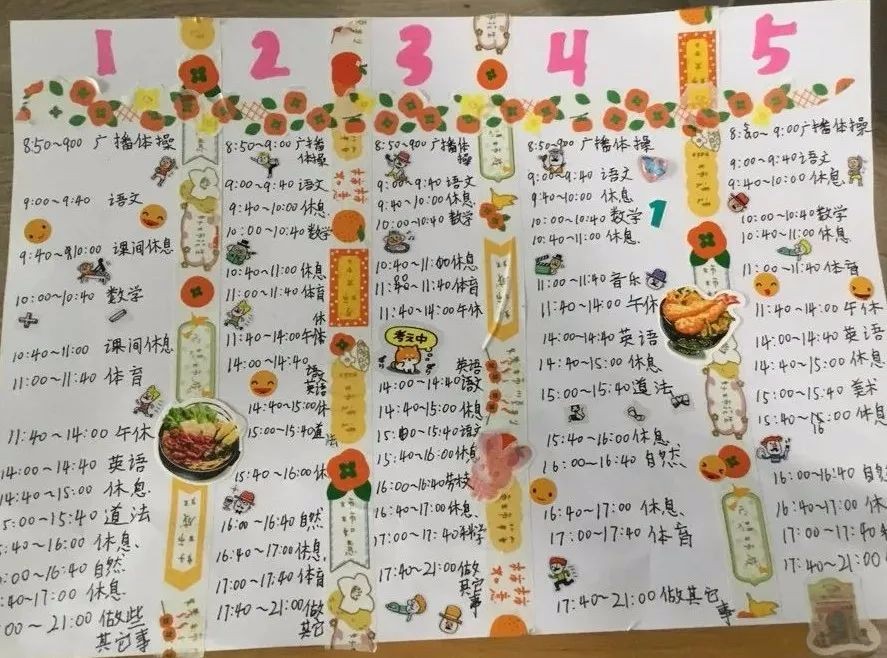 1
8:50~9:00 广播体操
9:00~9:40 语文
9:40~10:00 课间休息
10:00~10:40 数学
10:40~11:00 课间休息
11:00~11:40 体育
11:40~14:00 午休
14:00~14:40 英语
14:40~15:00 休息
5:00~15:40 道法
:40~16:00 休息
:00~16:40 自然
:40~17:00 休息
:00~21:00 做些
其它事
2
8:50~9:00 广播
体操
9:00~9:40 语文
9:40~10:00 休息
10:00~10:40 数学
10:40~11:00 休息
11:00~11:40 体育
11:40~14:00 午休
14:00~14:40
英语
14:40~15:00 休
15:00~15:40 道
法
15:40~16:00 休
16:00~16:40 自然
16:40~17:00 休息
17:00~17:40 体育
17:40~21:00 做
其它
3
8:50~9:00 广播体
操
9:00~9:40 语文
9:40~10:00 休息
10:00~10:40 数学
10:40~11:00 休息
11:00~11:40 体育
11:40~14:00 午休
考之中
英语
14:00~14:40 语文
14:40~15:00 休息
15:00~15:40 语文
15:40~16:00 休息
16:00~16:40 劳技
16:40~17:00 休息
17:00~17:40 科学
17:40~21:00 做
其它
事
4
8:50~9:00 广播体操
9:00~9:40 语文
9:40~10:00 休息
10:00~10:40 数学
1
10:40~11:00 休息
11:00~11:40 音乐
11:40~14:00 午休
14:00~14:40 英语
14:40~15:00 休息
15:00~15:40 道法
15:40~16:00 休息
16:00~16:40 自然
16:40~17:00 休息
17:00~17:40 体育
17:40~21:00 做其它
事
5
8:50~9:00 广播体操
9:00~9:40 语文
9:40~10:00 休息
10:00~10:40 数学
10:40~11:00 休息
11:00~11:40 体育
11:40~14:00 午休
14:00~14:40 英语
14:40~15:00 休息
15:00~15:40 美术
15:40~16:00 休息
16:00~16:40 自然
16:40~17:00 休
17:00~17:40
17:40~21:00